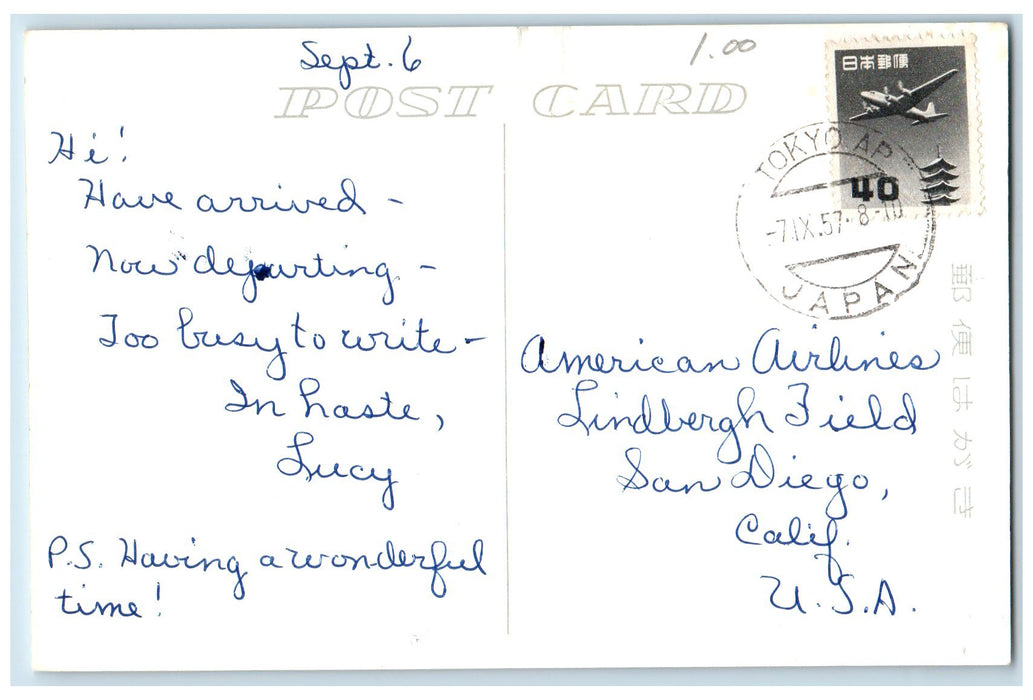 Sept. 6
1.00
POST CARD
Hi!
Have arrived -
Now departing -
Too busy to write -
In haste,
Lucy
P.S. Having a wonderful
time!
日本郵便
40
TOKYO AP
-7.IX.57.8-10
JAPAN
American Airlines
Lindbergh Field
San Diego,
Calif.
U.S.A.
郵便はがき